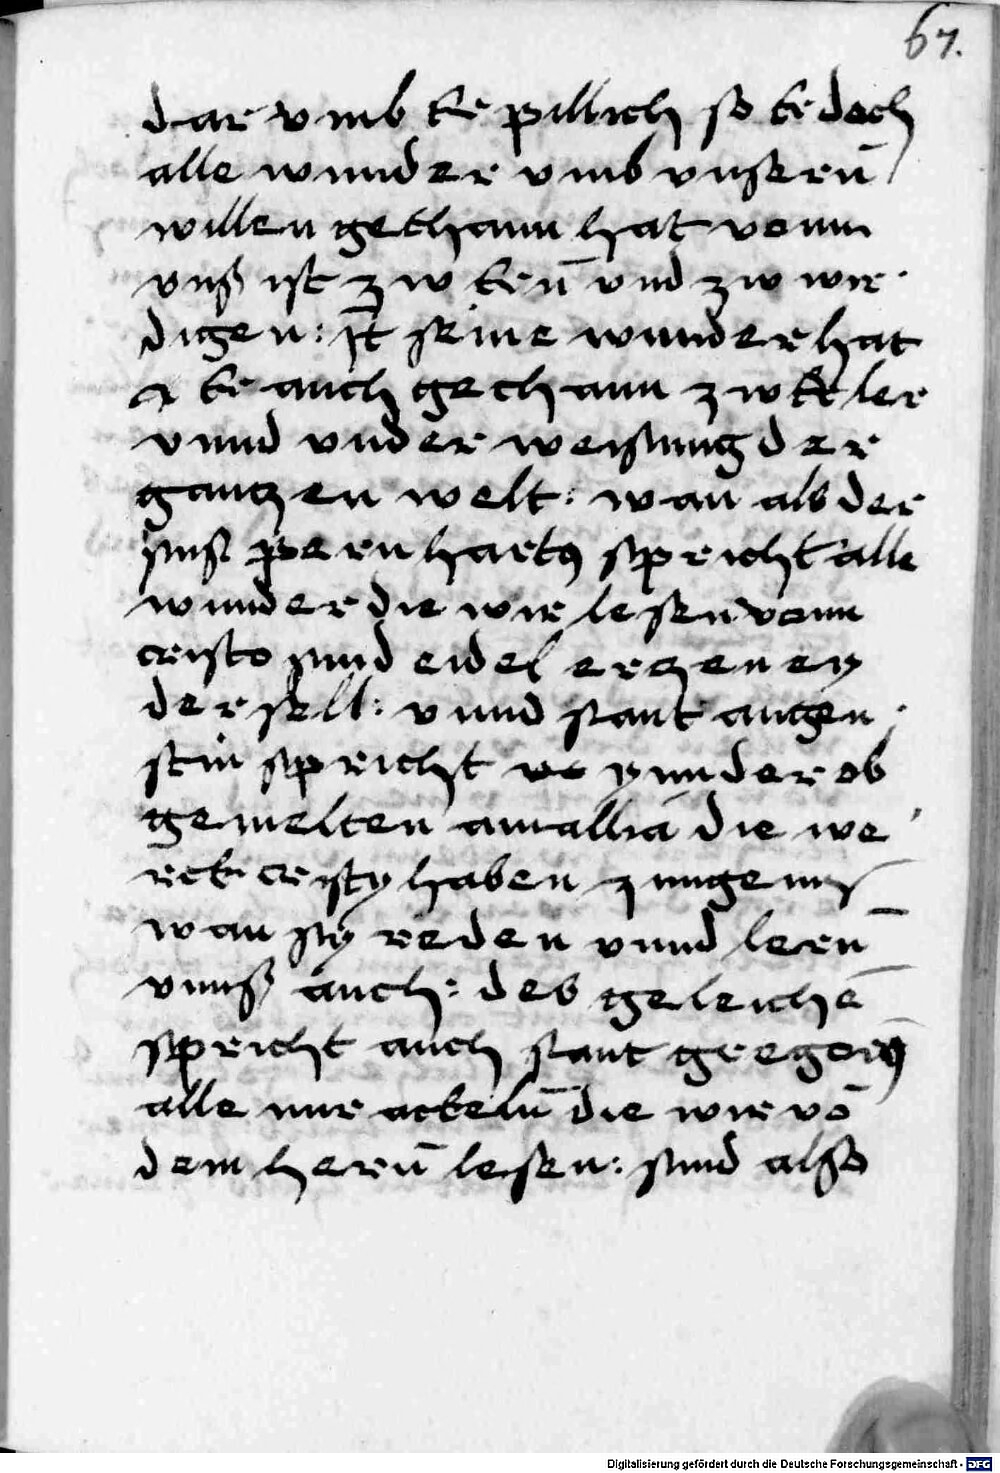 67.
dar vmb er pillich so er doch
alle wunder vmb vnserñ
willen gethann hat vonn
vnß ist zw erñ vnd zw wir
digen: Jt̄ seine wunder hat
er auch gethann zw der ler
vnnd vnderweisung der
gantzen welt: wan als der
sust pernhartꝰ spricht alle
wunder die wir lesen vonn
cristo sind eidel ertzeney
der sell: vnnd sant augen
stin spricht ynn der ob
gemelten amallia die we
rck cristy haben zungenn
wan sy reden vnnd lernn̄
vnnß auch: des geleichē
spricht auch sant gregoriꝰ
alle mirackelñ die wir vō
dem herñ lesen: sind also
Digitalisierung gefördert durch die Deutsche Forschungsgemeinschaft - DFG